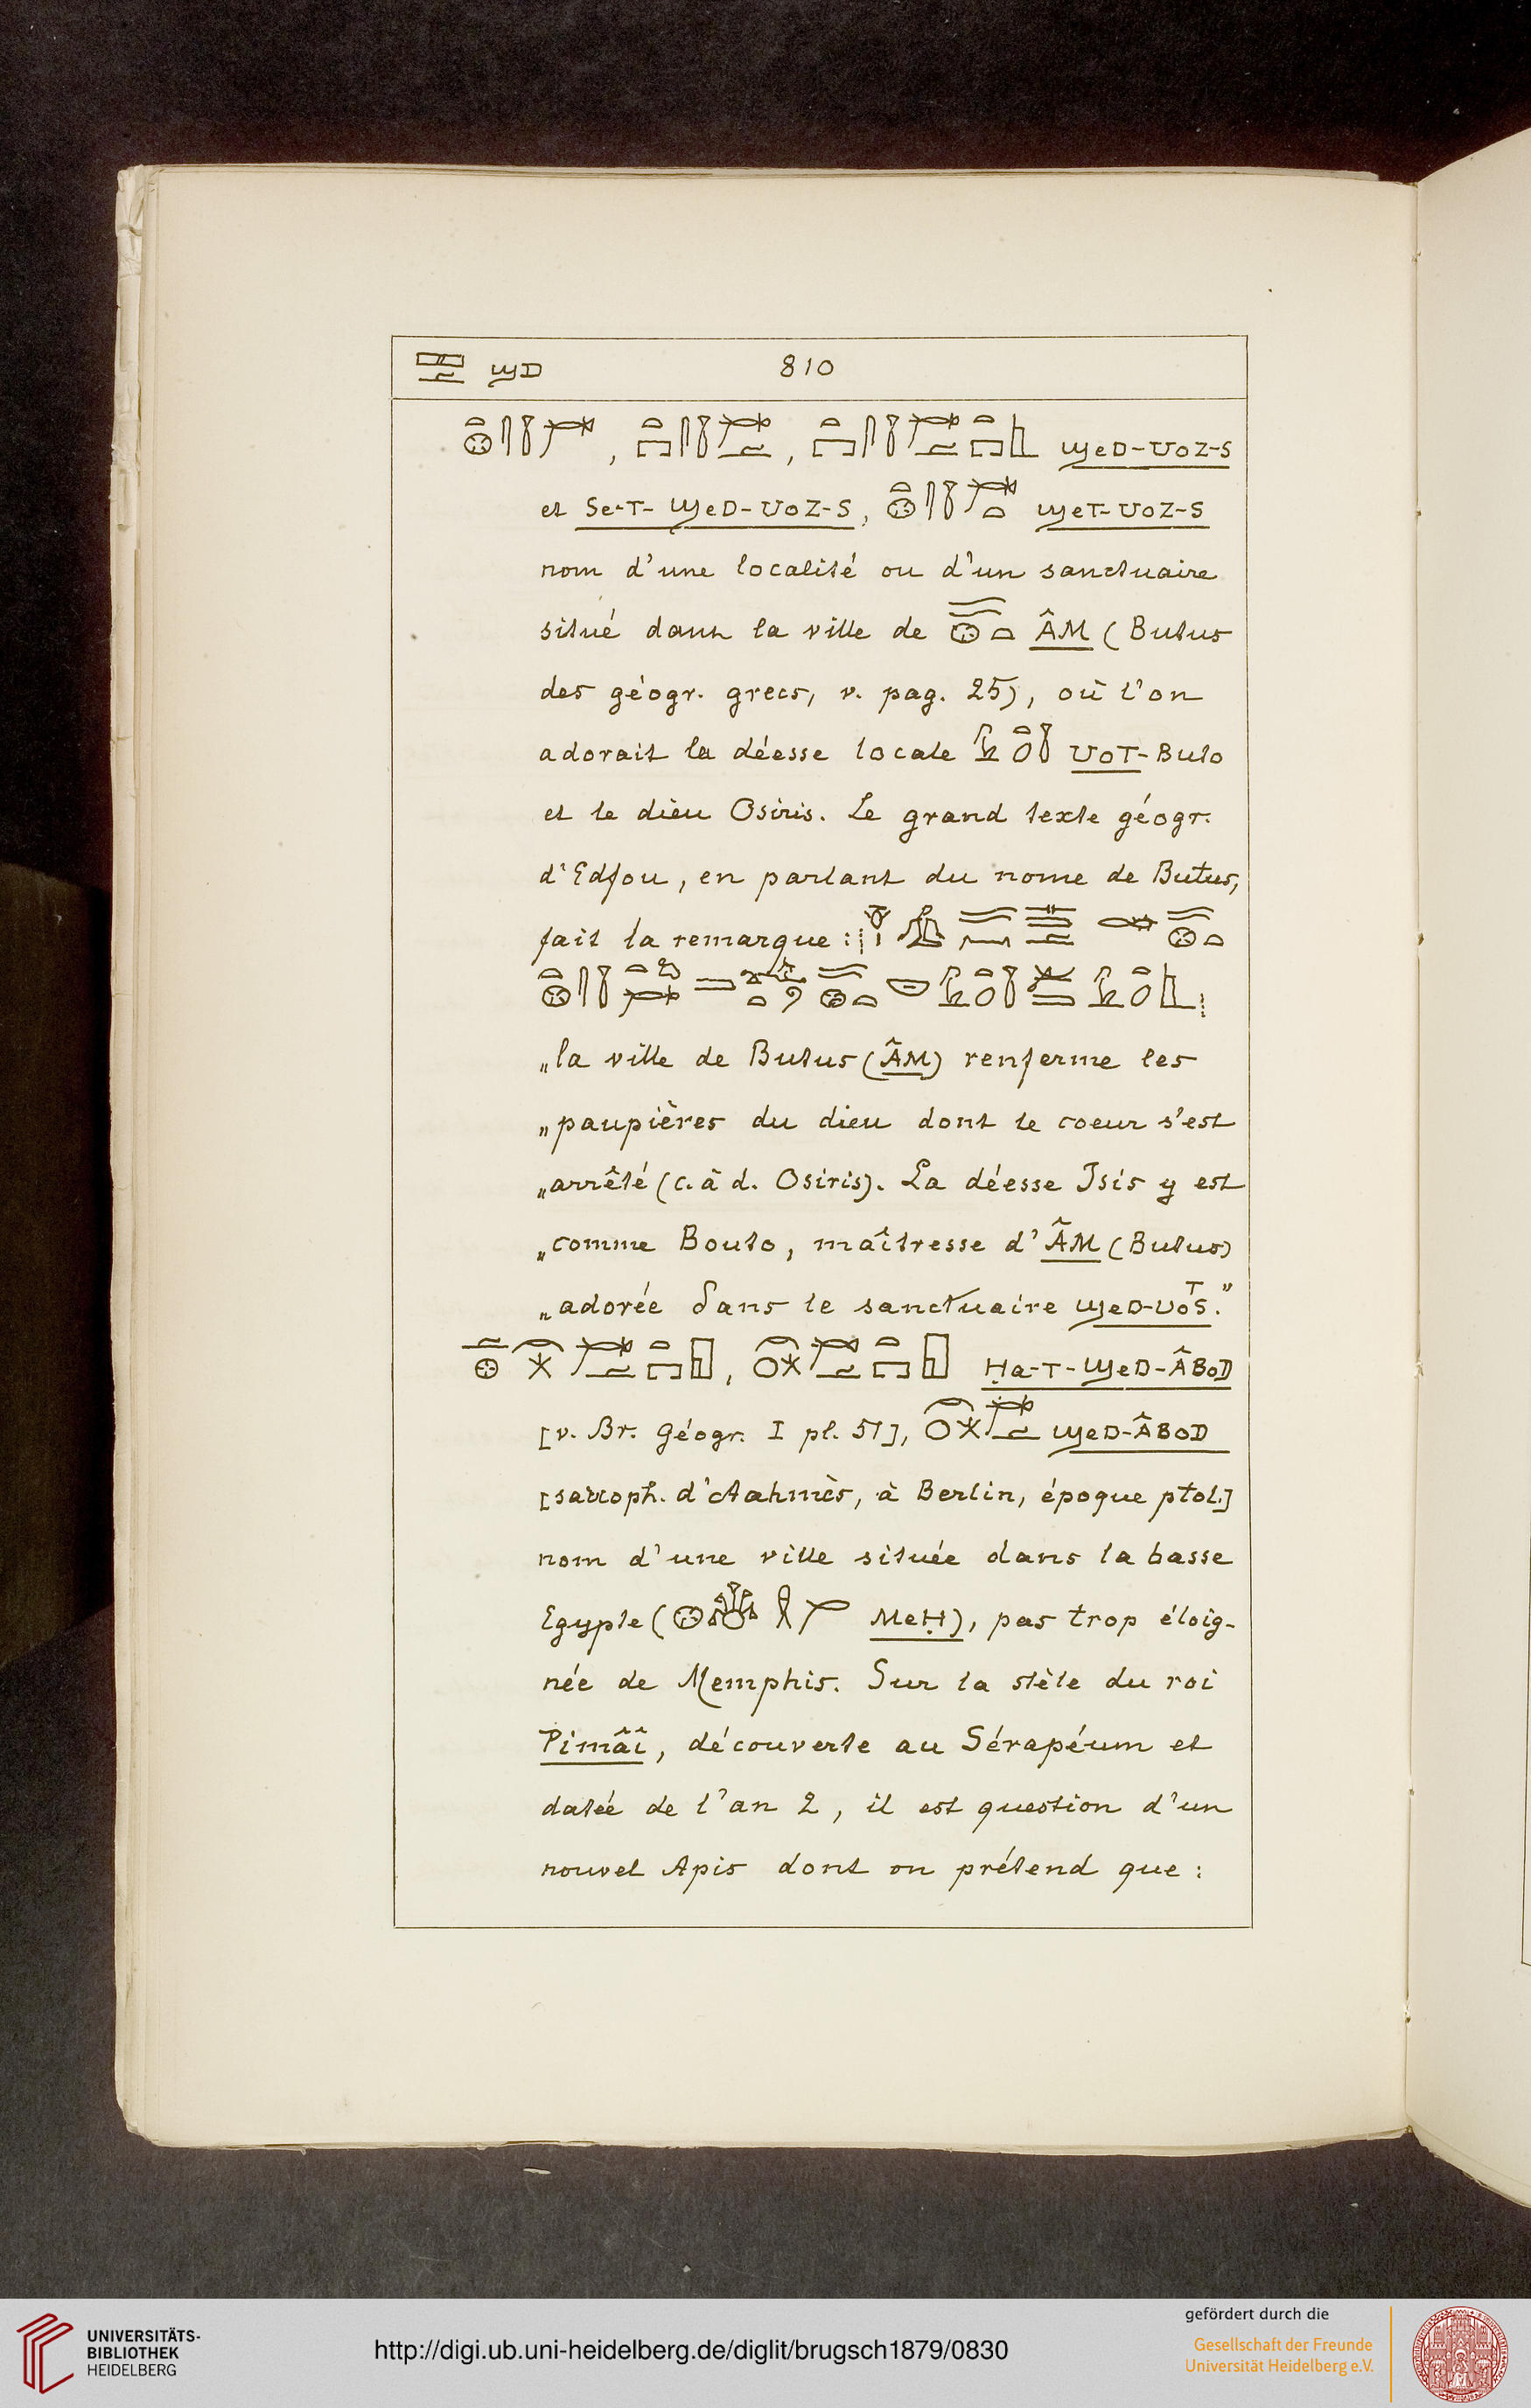 ϣD 810
, , ϣeD-UoZ-S
et Se-T- ϣeD-UoZ-S, ϣeT-UoZ-S
nom d'une localité ou d'un sanctuaire
situé dans la ville de ÂM (Butus
des géogr. grecs, v. pag. 25), où l'on
adorait la déesse locale UoT-Buto
et le dieu Osiris. Le grand texte géogr.
d'Edfou, en parlant du nome de Butus,
fait la remarque :
„la ville de Butus (ÂM) renferme les
„paupières du dieu dont le coeur s'est
„arrêté (c. à d. Osiris). La déesse Isis y est
„comme Bouto, maîtresse d'ÂM (Butus)
„adorée dans le sanctuaire ϣeD-UoTS."
, Ḥa-T-ϣeD-ÂBoD
[v. Br. Géogr. I pl. 51], ϣeD-ÂBoD
[sarcoph. d'Aahmès, à Berlin, époque ptol.]
nom d'une ville située dans la basse
Egypte ( MeḤ), pas trop éloig-
née de Memphis. Sur la stèle du roi
Pimâî, découverte au Sérapéum et
datée de l'an 2, il est question d'un
nouvel Apis dont on prétend que :
UNIVERSITÄTS-
BIBLIOTHEK
HEIDELBERG
http://digi.ub.uni-heidelberg.de/diglit/brugsch1879/0830
gefördert durch die
Gesellschaft der Freunde
Universität Heidelberg e.V.